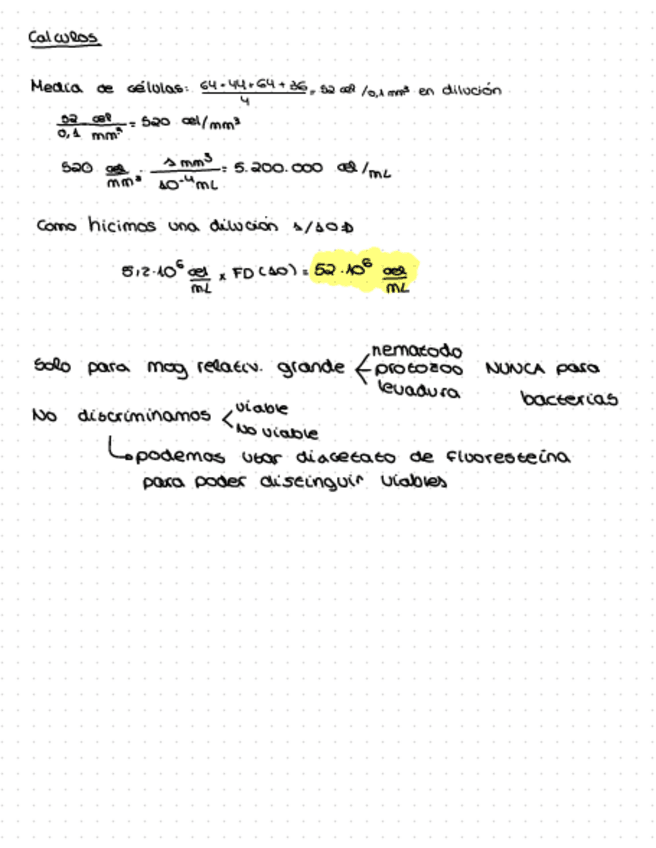 Calculos
Media de células: 64+44+64+36/4 = 52 cel/0,1 mm³ en dilución
52 cel/0,1 mm³ = 520 cel/mm³
520 cel/mm³ · 1 mm³/10⁻⁴ mL = 5.200.000 cel/mL
Como hicimos una dilución 1/10
5,2·10⁶ cel/mL x FD (10) = 52·10⁶ cel/mL
Solo para mog relativ. grande nematodo
protozoo
levadura
NUNCA para
bacterias
No discriminamos viable
No viable
podemos usar diacetato de fluoresteína
para poder distinguir viables